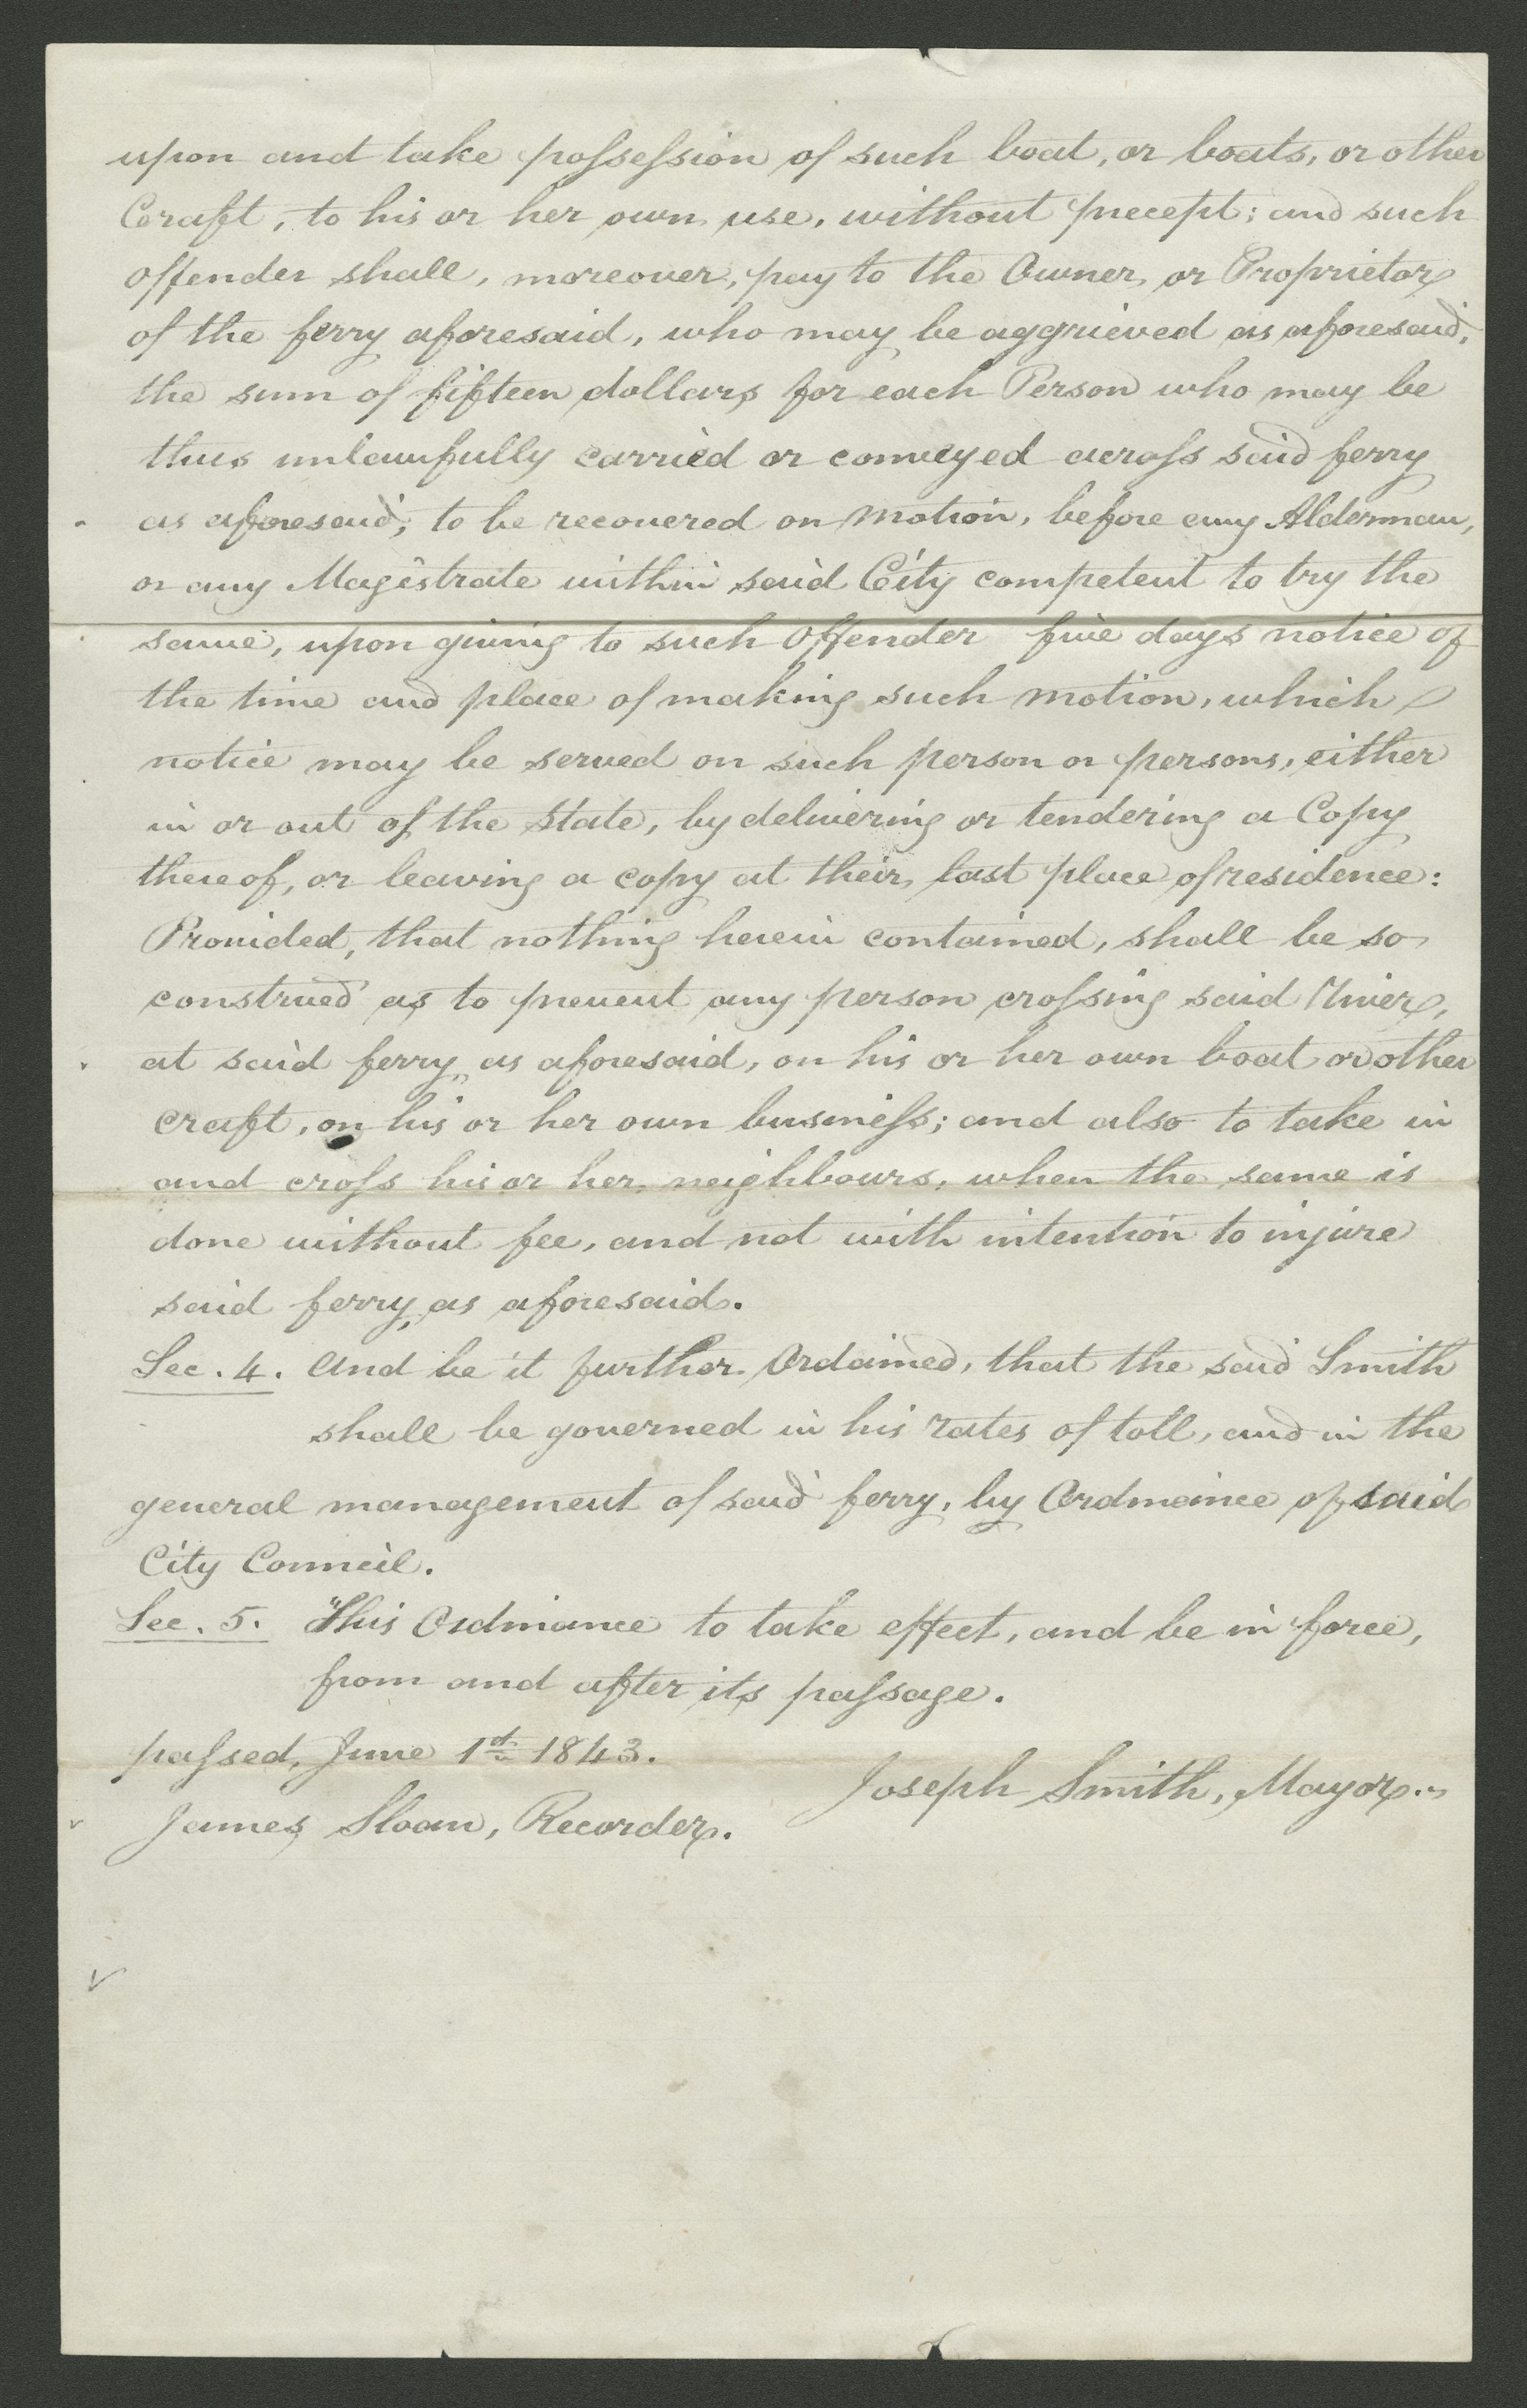 upon and take possession of such boat, or boats, or other
Craft, to his or her own use, without precept; and such
offender shall, moreover, pay to the Owner, or Proprietor
of the ferry aforesaid, who may be aggrieved as aforesaid,
the sum of fifteen dollars for each Person who may be
thus unlawfully carried or conveyed across said ferry
as aforesaid; to be recovered on motion, before any Alderman,
or any Magistrate within said City competent to try the
same, upon giving to such Offender five days notice of
the time and place of making such motion, which
notice may be served on such person or persons, either
in or out of the State, by delivering or tendering a Copy
thereof, or leaving a copy at their last place of residence:
Provided, that nothing herein contained, shall be so
construed as to prevent any person crossing said River,
at said ferry, as aforesaid, on his or her own boat or other
craft, on his or her own business; and also to take in
and cross his or her neighbours, when the same is
done without fee, and not with intention to injure
said ferry, as aforesaid.
Sec. 4. And be it further Ordained, that the said Smith
shall be governed in his rates of toll, and in the
general management of said ferry, by Ordinance of said
City Council.
Sec. 5. This Ordinance to take effect, and be in force,
from and after its passage.
passed, June 1st 1843.
Joseph Smith, Mayor.
James Sloan, Recorder.